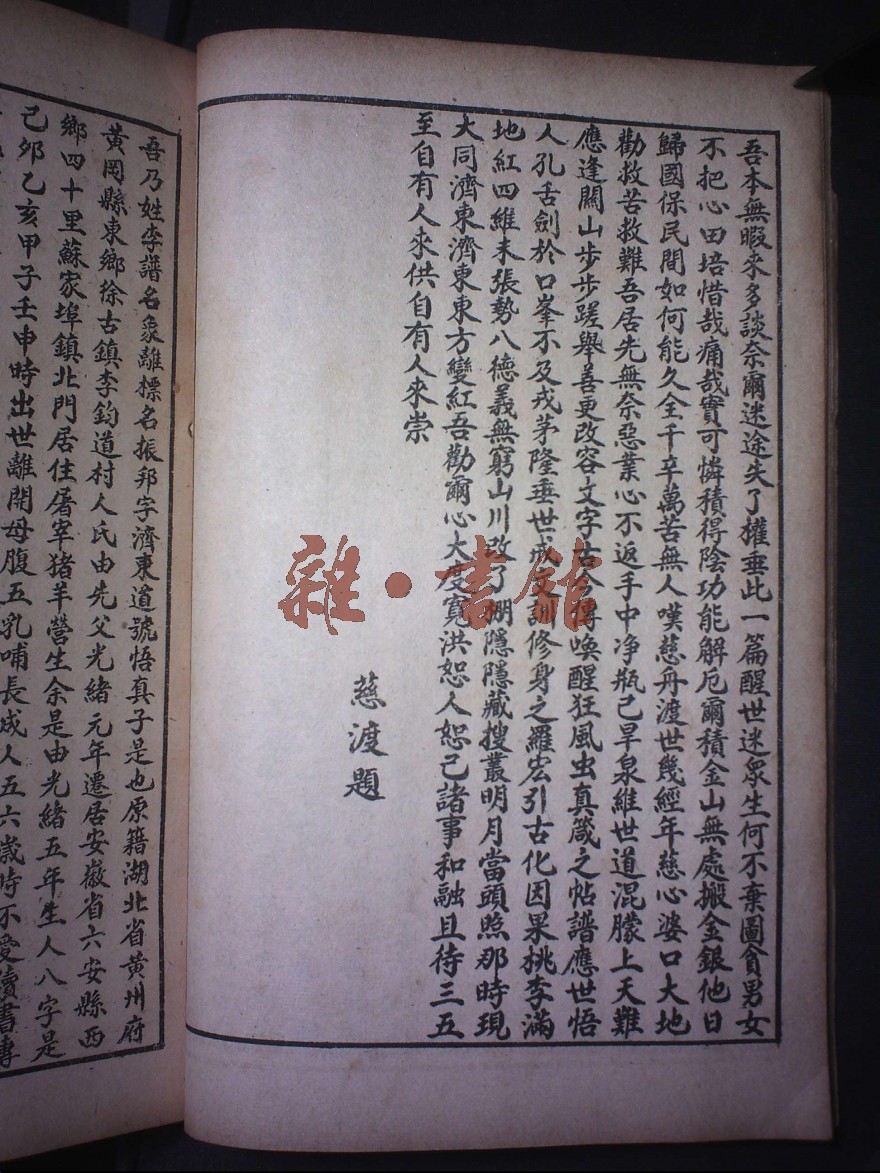 吾本無暇來多談奈爾迷途失了權垂此一篇醒世迷眾生何不棄圖貪男女
不把心田培惜哉痛哉實可憐積得陰功能解厄爾積金山無處搬金銀他日
歸國保民間如何能久全千辛萬苦無人嘆慈舟渡世幾經年慈心婆口大地
勸救苦救難吾居先無奈惡業心不返手中净瓶已旱泉維世道混朦上天難
應逢關山步步蹉舉善更改容文字古今傳喚醒狂風虫真箴之帖譜應世悟
人孔舌劍於口峯不及戎茅隆垂世戒文訓修身之羅宏引古化因果桃李滿
地紅四維未張勢八德義無窮山川改了棚隱隱藏搜叢明月當頭照那時現
大同濟東濟東東方變紅吾勸爾心大度寬洪恕人恕己諸事和融且待三五
至自有人來供自有人來崇
慈渡題
吾乃姓李譜名象離標名振邦字濟東道號悟真子是也原籍湖北省黃州府
黃岡縣東鄉徐古鎮李鈞道村人氏由先父光緒元年遷居安徽省六安縣西
鄉四十里蘇家埠鎮北門居住屠宰猪羊營生余是由光緒五年生人八字是
己卯乙亥甲子壬申時出世離開母腹五乳哺長成人五六歲時不愛讀書專
雜·書館